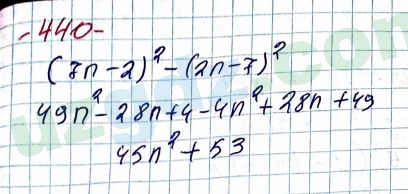 -440-
(7n-2)²-(2n-7)²
49n²-28n+4-4n²+28n+49
45n²+53